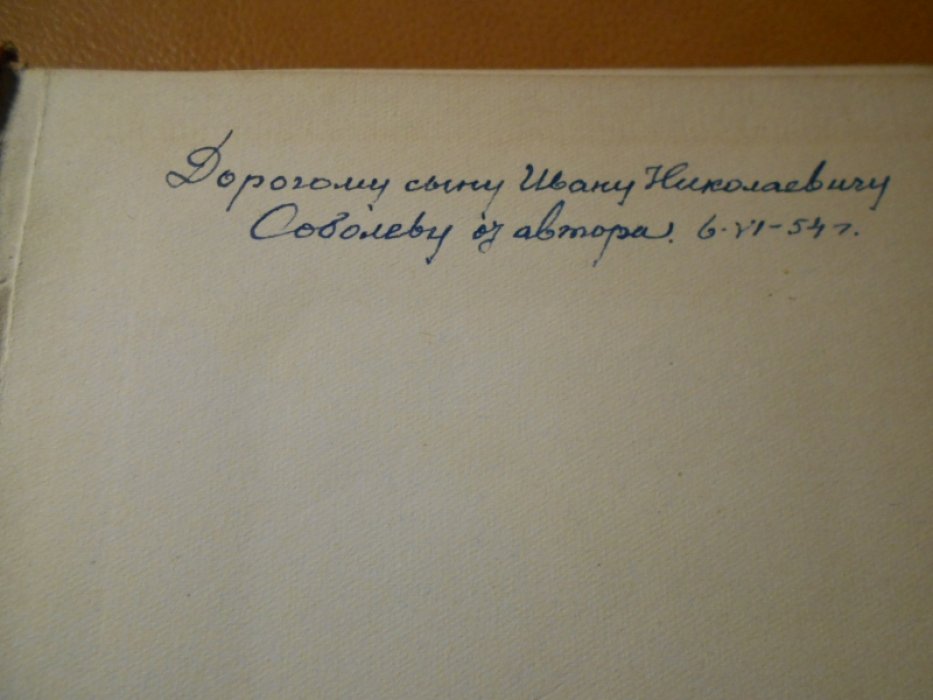 Дорогому сыну Ивану Николаевичу
Соболеву от автора. 6-VI-54 г.